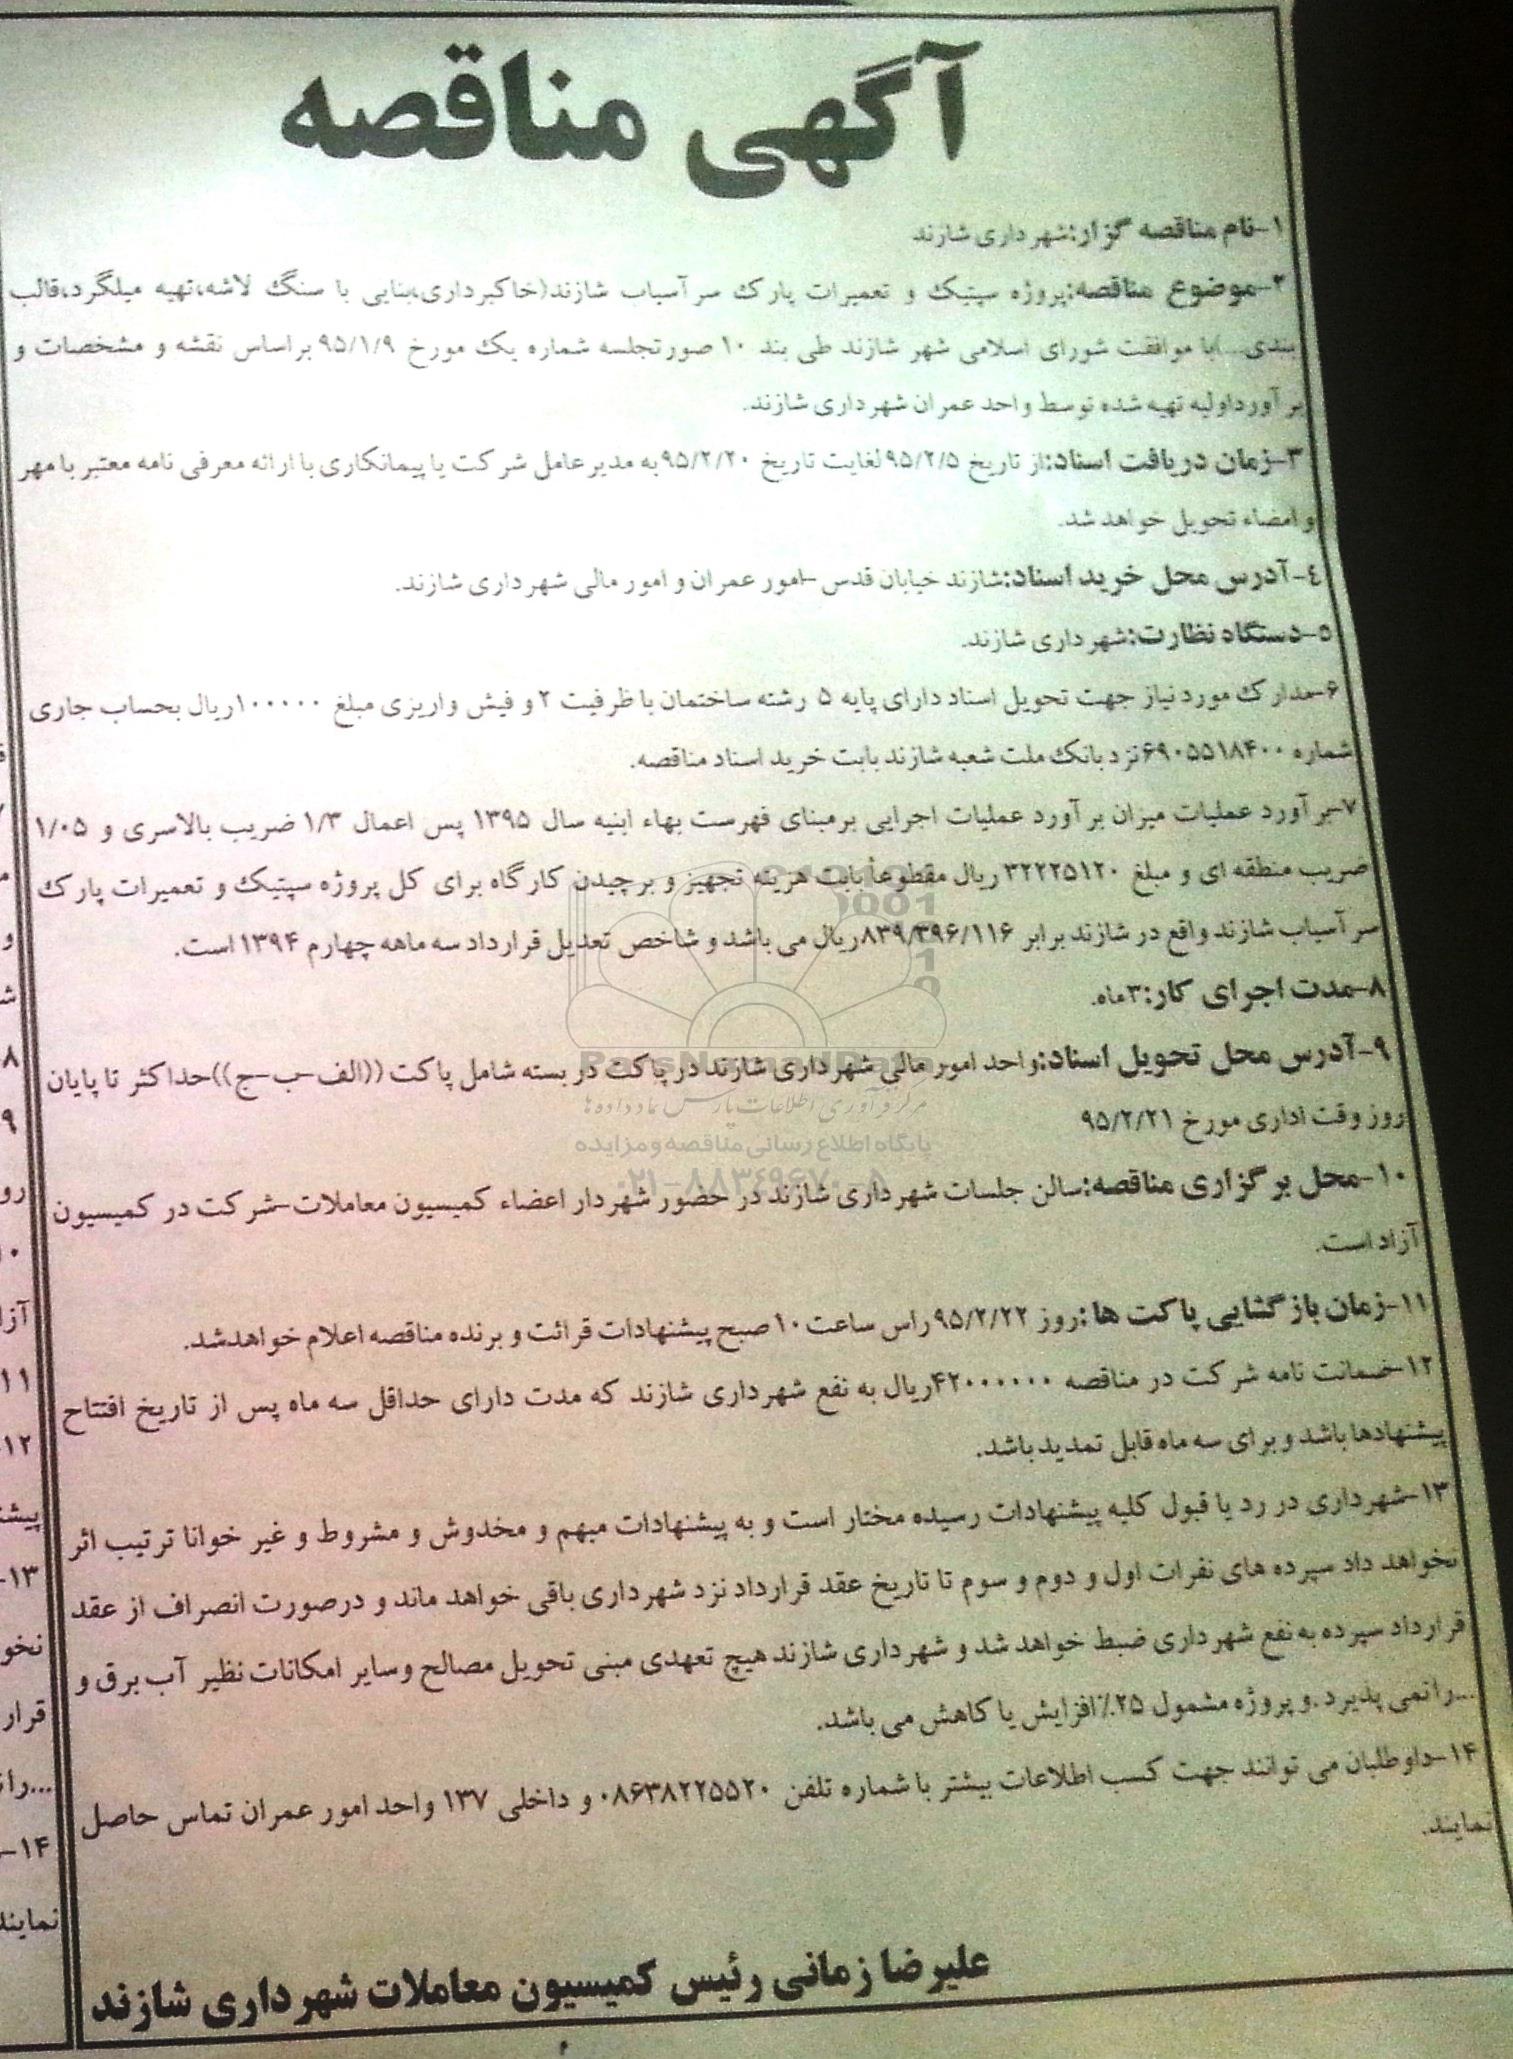 آگهی مناقصه
۱-نام مناقصه گزار:شهرداری شازند
۲-موضوع مناقصه:پروژه سپتیک و تعمیرات پارک سرآسیاب شازند(خاکبرداری،بنایی با سنگ لاشه،تهیه میلگرد،قالب
بندی...)با موافقت شورای اسلامی شهر شازند طی بند ۱۰ صورتجلسه شماره یک مورخ ۹۵/۱/۹ براساس نقشه و مشخصات و
برآورداولیه تهیه شده توسط واحد عمران شهرداری شازند.
۳-زمان دریافت اسناد:از تاریخ ۹۵/۲/۵ لغایت تاریخ ۹۵/۲/۲۰ به مدیرعامل شرکت یا پیمانکاری با ارائه معرفی نامه معتبر با مهر
و امضاء تحویل خواهد شد.
۴-آدرس محل خرید اسناد:شازند خیابان قدس-امور عمران و امور مالی شهرداری شازند.
۵-دستگاه نظارت:شهرداری شازند.
۶-مدارک مورد نیاز جهت تحویل اسناد دارای پایه ۵ رشته ساختمان با ظرفیت ۲ و فیش واریزی مبلغ ۱۰۰۰۰۰ریال بحساب جاری
شماره ۶۹۰۵۵۱۸۴۰۰نزد بانک ملت شعبه شازند بابت خرید اسناد مناقصه.
۷-برآورد عملیات میزان برآورد عملیات اجرایی برمبنای فهرست بهاء ابنیه سال ۱۳۹۵ پس اعمال ۱/۳ ضریب بالاسری و ۱/۰۵
ضریب منطقه ای و مبلغ ۳۲۲۲۵۱۲۰ ریال مقطوعاً بابت هزینه تجهیز و برچیدن کارگاه برای کل پروژه سپتیک و تعمیرات پارک
سرآسیاب شازند واقع در شازند برابر ۸۳۹/۳۹۶/۱۱۶ریال می باشد و شاخص تعدیل قرارداد سه ماهه چهارم ۱۳۹۴ است.
۸-مدت اجرای کار:۳ماه.
۹-آدرس محل تحویل اسناد:واحد امور مالی شهرداری شازند در پاکت در بسته شامل پاکت ((الف-ب-ج))حداکثر تا پایان
روز وقت اداری مورخ ۹۵/۲/۲۱
۱۰-محل برگزاری مناقصه:سالن جلسات شهرداری شازند در حضور شهردار اعضاء کمیسیون معاملات-شرکت در کمیسیون
آزاد است.
۱۱-زمان بازگشایی پاکت ها:روز ۹۵/۲/۲۲ راس ساعت ۱۰ صبح پیشنهادات قرائت و برنده مناقصه اعلام خواهدشد.
۱۲-ضمانت نامه شرکت در مناقصه ۴۲۰۰۰۰۰۰ریال به نفع شهرداری شازند که مدت دارای حداقل سه ماه پس از تاریخ افتتاح
پیشنهادها باشد و برای سه ماه قابل تمدید باشد.
۱۳-شهرداری در رد یا قبول کلیه پیشنهادات رسیده مختار است و به پیشنهادات مبهم و مخدوش و مشروط و غیر خوانا ترتیب اثر
نخواهد داد سپرده های نفرات اول و دوم و سوم تا تاریخ عقد قرارداد نزد شهرداری باقی خواهد ماند و درصورت انصراف از عقد
قرارداد سپرده به نفع شهرداری ضبط خواهد شد و شهرداری شازند هیچ تعهدی مبنی تحویل مصالح و سایر امکانات نظیر آب برق و
...را نمی پذیرد.و پروژه مشمول ۲۵٪افزایش یا کاهش می باشد.
۱۴-داوطلبان می توانند جهت کسب اطلاعات بیشتر با شماره تلفن ۰۸۶۳۸۲۲۵۵۲۰ و داخلی ۱۳۷ واحد امور عمران تماس حاصل
نمایند.
علیرضا زمانی رئیس کمیسیون معاملات شهرداری شازند
ParsNamadData
مرکز فرآوری اطلاعات پارس نماد داده ها
پایگاه اطلاع رسانی مناقصه و مزایده
۰۲۱-۸۸۳۴۹۶۷۰-۵